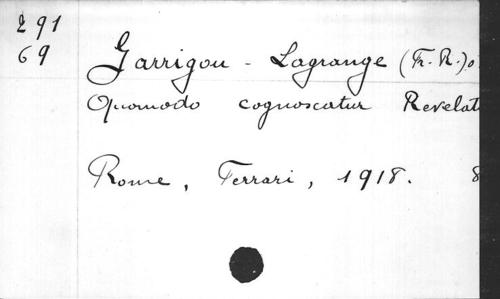 291
69
Garrigou - Lagrange (Fr. R.) o
Quomodo cognoscatur Revelat
Rome, Ferrari, 1918. 8